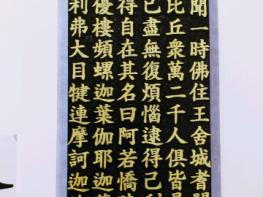 聞一時佛住王舍城耆
比丘衆萬二千人俱皆
已盡無復煩惱逮得己利
得自在其名曰阿若憍
優樓頻螺迦葉伽耶迦
利弗大目犍連摩訶迦